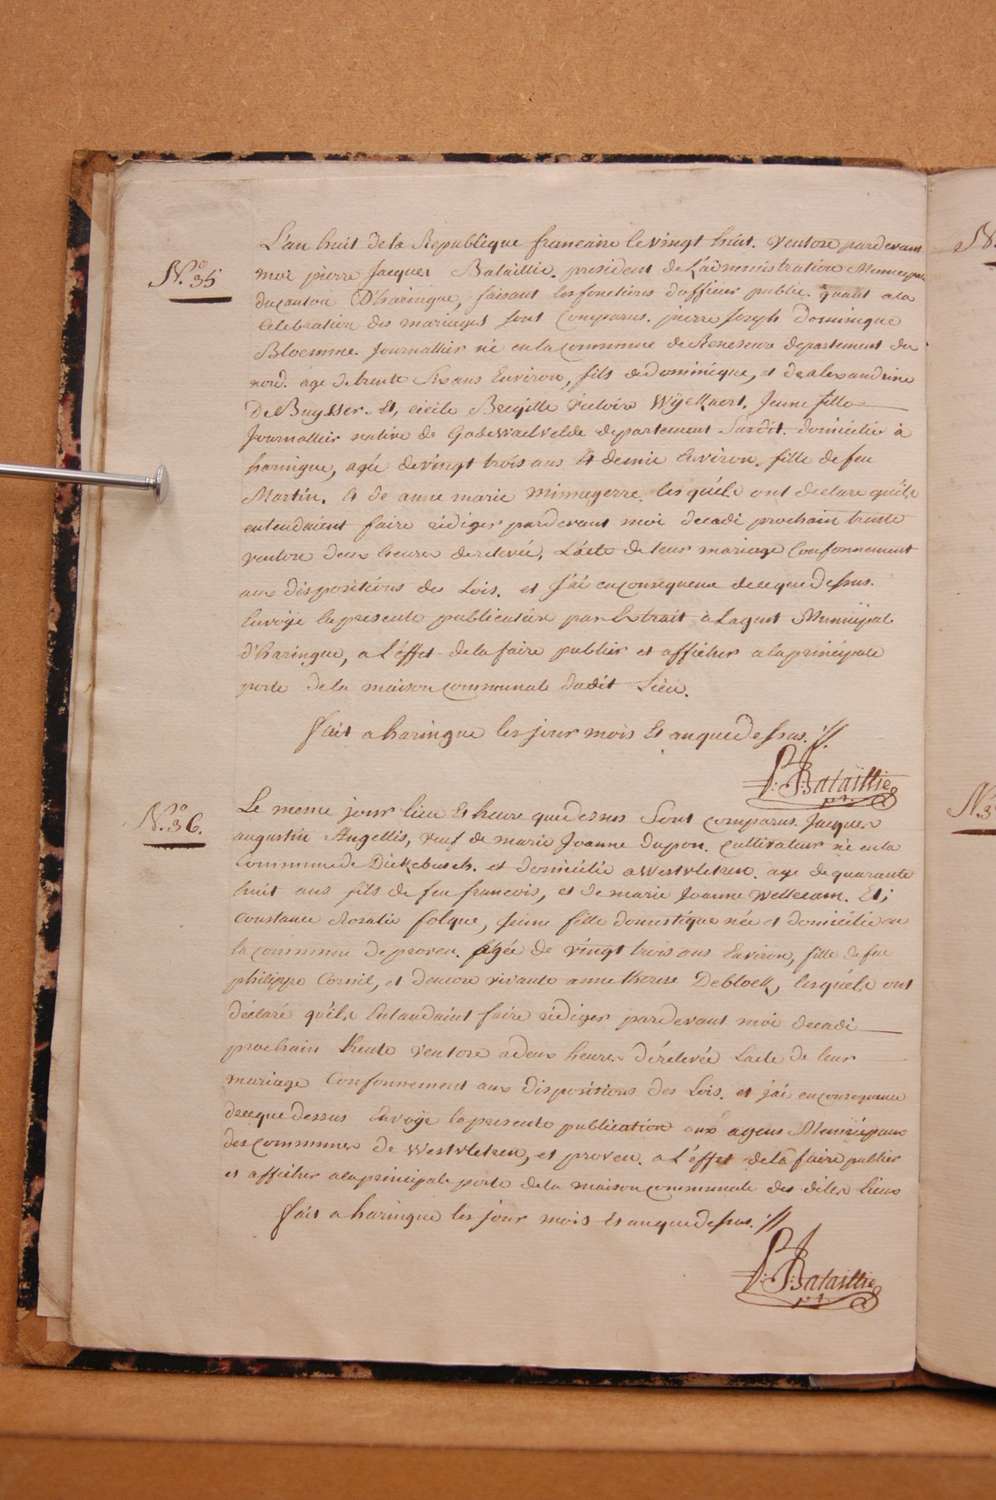 L'an huit de la Republique francaise le vingt huit. ventose pardevant
N.º 35
moi pierre Jacques Bataillie. president de L'administration Municipal
du canton D'haringue, faisant les fonctions d'officier public. quant a la
Celebration des mariages sont Comparus. pierre Joseph dominique
Bloemme. Journallier né en la commune de Renescure departement du
nord. age de trente six ans Environ, fils de dominique, et de alexandrine
De Buysser. Et, cicile Brigitte victoire Wyckaert. Jeune fille
Journallier native de Godewaelvelde departement Susdit. domiciliée à
haringue, agée de vingt trois ans & demie Environ. fille de feu
Martin. & de anne marie Minnegerre. lesquéls ont declare quéls
entendaient faire rédiger pardevant moi decadi prochain trente
ventose deux heures de relevée, L'acte de leur mariage Conformement
aux dispositions des Lois. et J'ai en consequence de ce que dessus.
Envoÿe la presente publication par Extrait à Lagent Municipal
d'haringue, a L'éffet de la faire publier et afficher a la principale
porte de la maison communale dudit Lieu.
fait a haringue les jour mois Et an que dessus. //.
P: J: Bataillie
N.º 36.
Le meme jour lieu Et heure que dessus Sont comparus. Jacques
augustin Angellis, veuf de marie Joanne dupon. cultivateur né en la
Commune de Dickebusch. et domicilié a Westvletren. age de quarante
huit ans fils de feu francois, et de marie Joanne Wellecam. Et;
Constance Rosalie folque, Jeune fille domestique née et domiciliée en
la commune de proven. agée de vingt trois ans Environ, fille de feu
philippe Cornil, et dencore vivante anne therese Deblock, lesquéls ont
déclaré quéls Entandaint faire rédiger pardevant moi decadi
prochain trente ventose a deux heures dérelevée Lacte de leur
mariage Conformement aux dispositions des Lois. et j'ai en consequence
dece que dessus Envoÿe la presente publication aux agens Municipaux
des communes de Westvletren, et proven. a L'éffet de la faire publier
et afficher a la principale porte de la maison communale des dites lieux
fait a haringue les jour mois Et an que dessus. //
P: J: Bataillie